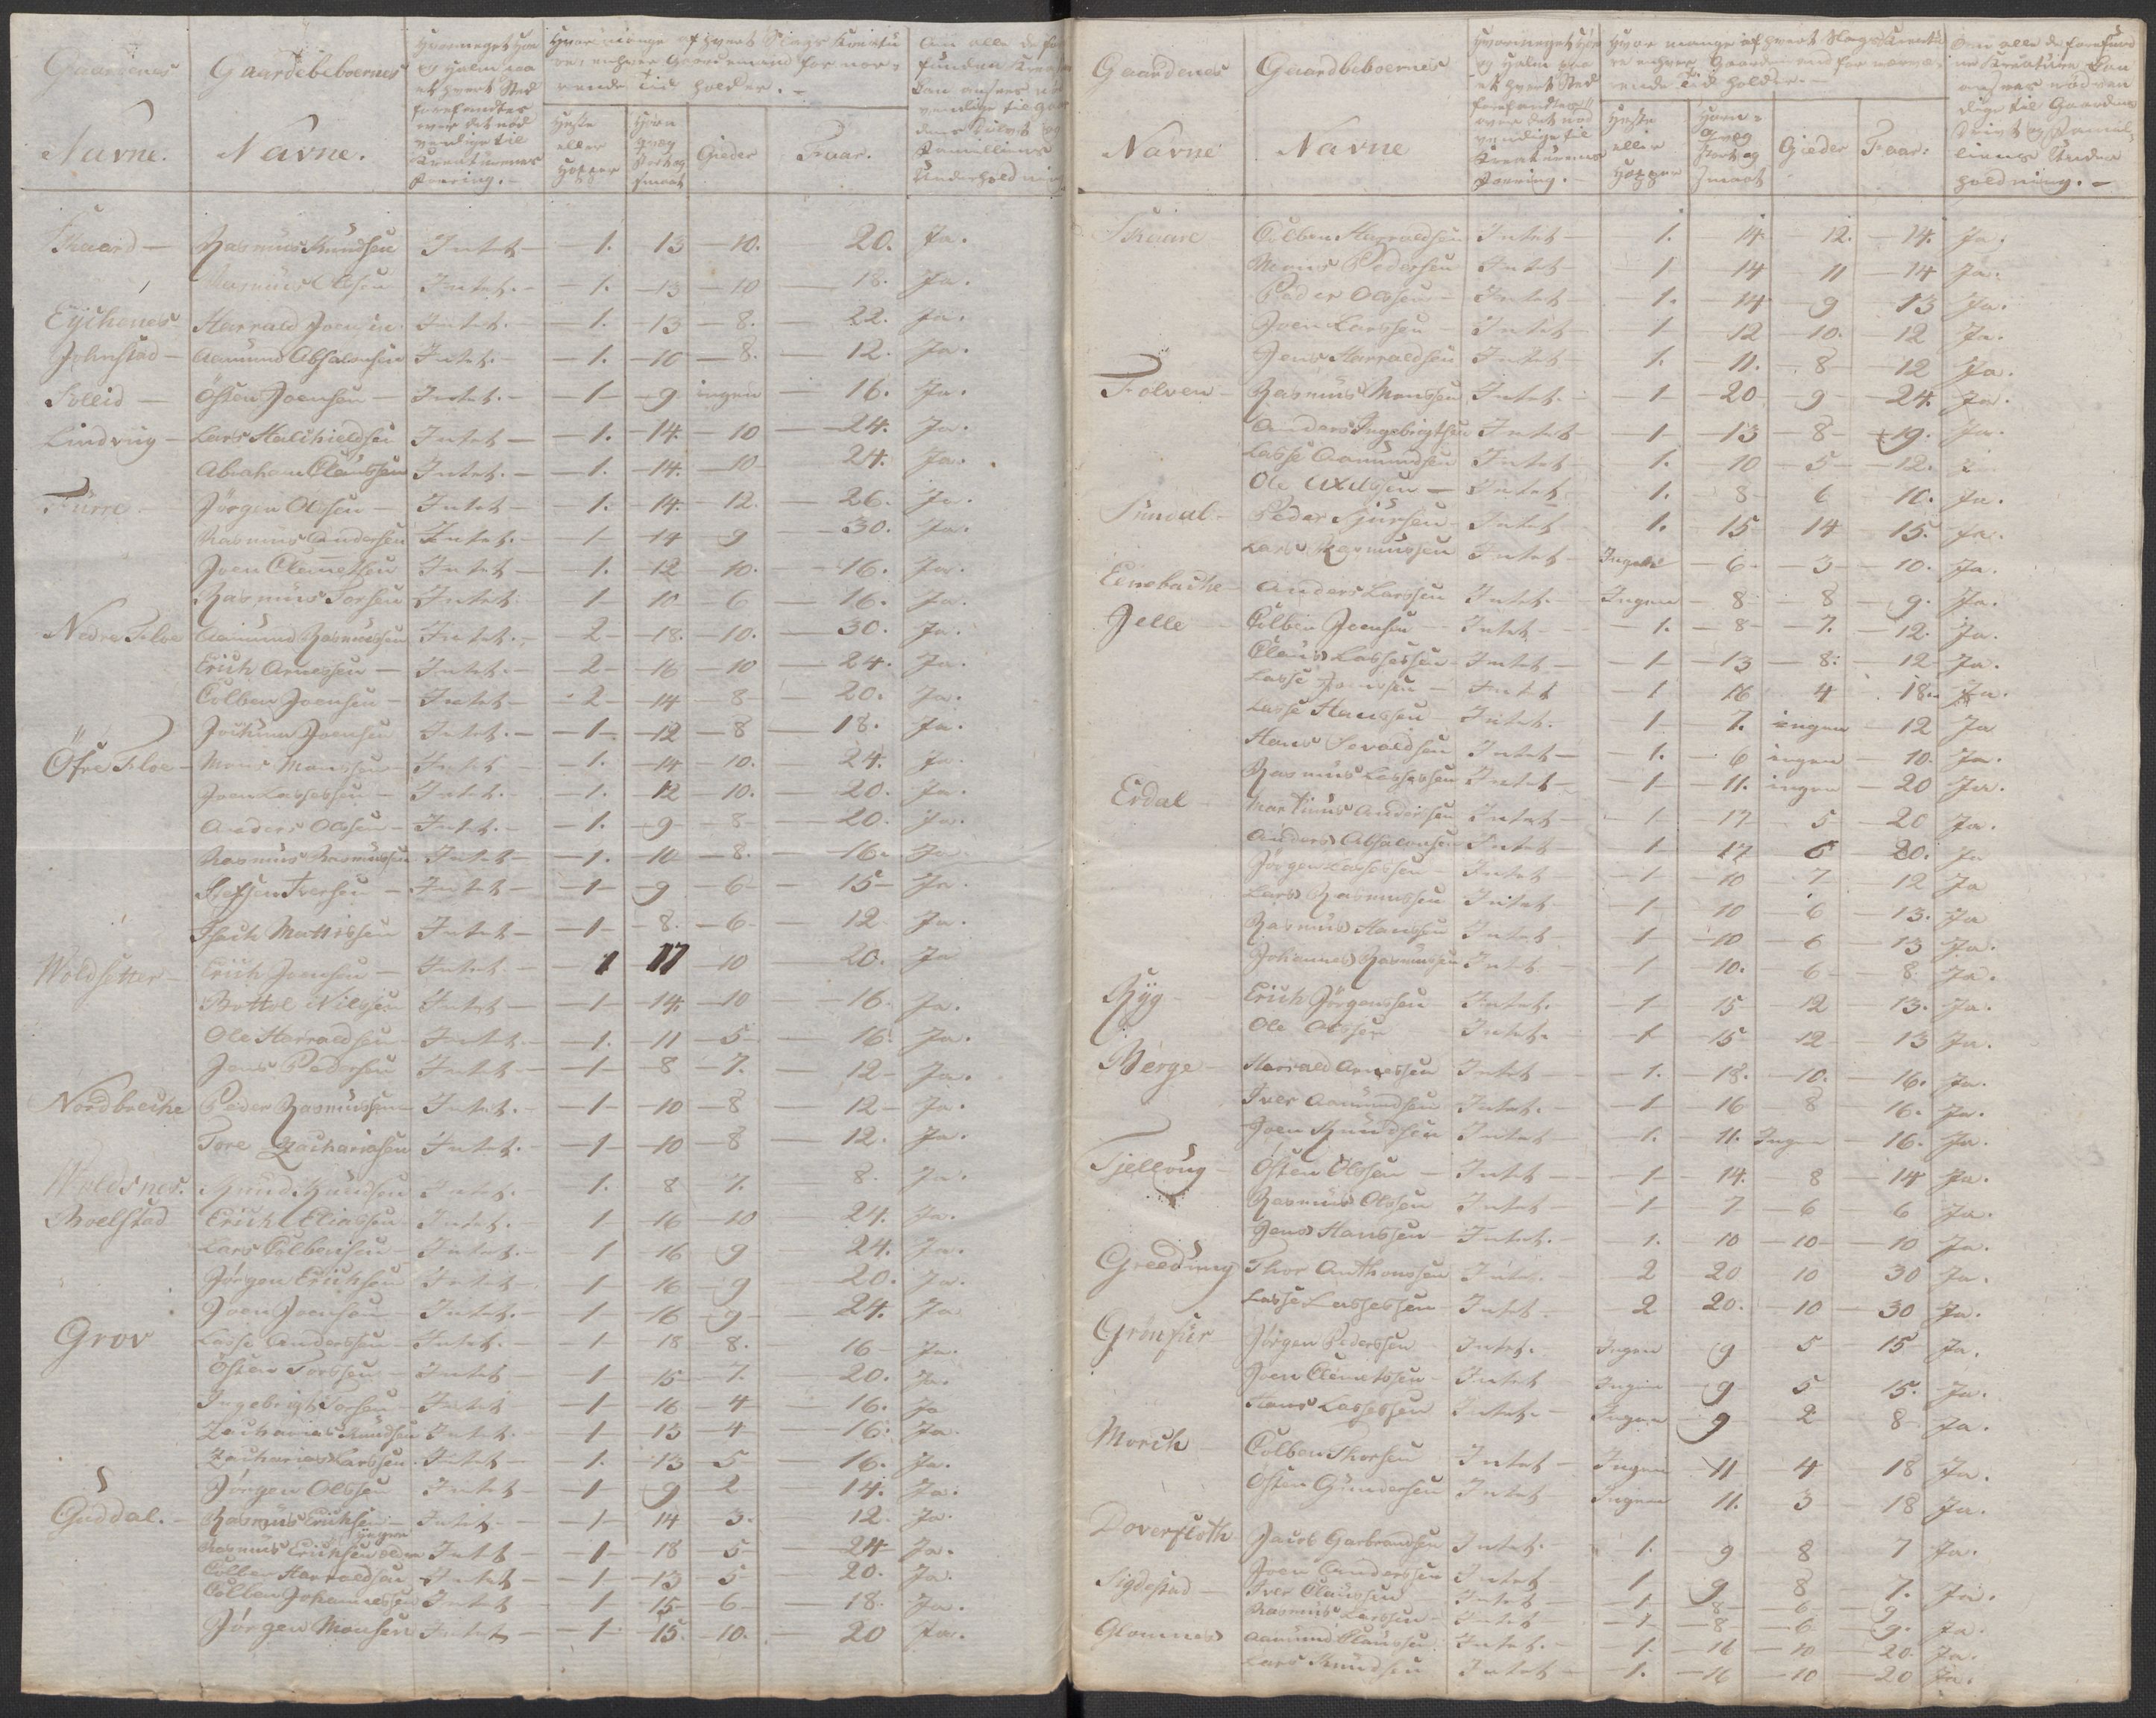 Gaardenes Navne.
Gaardebeboernes Navne.
Hvormeget Høe og Halm paa et hvert Sted forefandtes over det nød vendige til Kreaturenes Foering.
Hvor mange af hvert Slags Kreatu re, enhver Gaardemand for nær værende Tid holder.
Heste eller Hopper
Horn qvæg Stort og smaat
Gieder
Faar.
Om alle de fore fundne
kan ansees nød vendige til Gaar dens og Familliens Underholdning
Rasmus Knudsen Intet 1. 13 10. 20. Ja.
Rasmus Olsen Intet. 1. 13 10 18. Ja.
Harrald Joensen Intet. 1. 13 8. 22. Ja.
Johnstad Aamund Absalonsen Intet. 1. 10 8. 12. Ja.
Sollid Østen Joensen Intet. 1 9 ingen 16. Ja.
Lindvig Lars Intet 1. 14. 10 24. Ja.
Abraham Claussen Intet. 1. 14. 10 24. Ja.
Furre Jørgen Olsen Intet 1. 14. 12. 26. Ja.
Rasmus Andersen Intet. 1 14 9 30. Ja.
Joen Clemetsen Intet 1. 12 10. 16. Ja.
Rasmus Torsen Intet 1 10 6 16. Ja.
Nedre Floe Aamund Rasmussen Intet. 2 18. 10. 30. Ja.
Erich Arnessen Intet. 2 16 10 24. Ja.
Colben Joensen Intet 2 14 8 20. Ja.
Jochum Joensen Intet. 1 12 8 18. Ja.
Öfre Floe Mons Monsen Intet 1. 14 10. 24. Ja.
Joen Lassessen Intet. 1. 12 10. 20. Ja.
Anders Olsen Intet. 1. 9 8 20. Ja.
Rasmus Rasmussen Intet 1. 10 8. 16. Ja
Steffen Iversen Intet 1 9 6 15 Ja.
Mattissen Intet 1 8. 6 12 Ja.
Woldsetter Erich Joensen Intet. 1 17 10 20. Ja
Bottol Nilsen Intet 1 14. 10 16 Ja.
Ole Harraldsen Intet. 1. 11 5 16. Ja.
Jens Pedersen Intet 1 8 7. 12 Ja.
Nordbreche Peder Rasmussen Intet. 1 10 8 12 Ja.
Tore Zachariasen Intet. 1 10 8 12. Ja.
Woldsnes. Knud Knudsen Intet. 1. 8 7. 8. Ja.
Erich Eliassen Intet. 1 16 10 24. Ja.
Lars Colbensen Intet. 1 16 9 24. Ja.
Jørgen Erichsen Intet 1 16 9 20. Ja.
Joen Joensen Intet. 1 16 9 24. Ja
Grov Lasse Anderssen Intet. 1 18 8. 16 Ja.
Østen Torssen Intet 1 15 7. 20. Ja.
Ingebrigt Torsen Intet 1 16 4 16. Ja
Zacharias Knudsen Intet. 1 13 4 16. Ja.
Zacharias Larssen Intet 1. 13 5 16. Ja.
Jørgen Olssen Intet 1 9 2 14. Ja.
Guddal. Rasmus Erichsen yngre Intet 1 14 3. 12. Ja.
Rasmus Erichsen Intet 1 18 5 24 Ja.
Colben Harraldsen Intet 1 13 5 20. Ja.
Colben Johannessen Intet 1 15 6 18. Ja.
Jørgen Monsen Intet 1 15 10. 20 Ja.
Gaardenes Navne
Gaardbeboernes Navne
Hvormeget Høe og Halm paa et hvert Sted forefandtes over det nød vendige til Kreaturenes Foering.
Hvor mange af hvert Slags Kreatu re enhver Gaardemand for nærvæ rende Tid holder.
Heste eller Hopper
Horn- qvæg stort og smaat
Gieder
Faar.
Om alle de forefund ne Kreature kan ansees nødven dige til Gaardens og Famil liens Under holdning.
Skaare Colben Harraldsen Intet 1. 14. 12. 14. Ja.
Mons Pedersen Intet 1 14 11 14 Ja.
Peder Olssen Intet 1. 14 9 13 Ja.
Joen Larssen Intet 1 12 10. 12 Ja.
Jens Harraldsen Intet 1. 11. 8 12 Ja.
Folven Rasmus Monssen Intet. 1 20 9 24. Ja.
Anders Ingebrigtsen Intet 1 13 8 19. Ja.
Lasse Aamundsen Intet 1. 10 5 12.
Ole Intet 1. 8 6 10. Ja.
Sundal Peder Sjursen Intet 1. 15 14 15. Ja.
Lars Rasmussen Intet Ingen 6 3 10. Ja.
Anders Larssen Intet. Ingen 8 8 9. Ja.
Jelle Colben Joensen Intet 1. 8 7. 12. Ja.
Claus Lassessen Intet 1 13 8. 12 Ja.
Lasse Intet 1 16 4 18. Ja.
Lasse Hanssen Intet. 1 7. ingen 12 Ja
Hans Sevaldsen Intet 1. 6 ingen 10. Ja.
Rasmus Lassessen Intet 1 11. ingen 20 Ja.
Erdal Martinus Anderssen Intet 1 17 5 20 Ja.
Anders Absalonsen Intet 1 17 6 20. Ja
Jørgen Lassessen Intet 1 10 7 12 Ja
Lars Rasmussen Intet 1 10 6 13. Ja
Rasmus Hanssen Intet 1 10 6 13 Ja.
Johannes Rasmussen Intet 1 10. 6 8. Ja.
Ryg Erich Jørgenssen Intet. 1 15 12 13. Ja.
Ole Olssen Intet. 1 15 12 13 Ja.
Berge Harrald Arnessen Intet 1. 18. 10. 16. Ja.
Iver Aamundsen Intet. 1 16 8 16. Ja.
Joen Knudsen Intet 1. 11. Ingen 16. Ja.
Tjelloug Østen Olssen Intet 1 14. 8 14 Ja.
Rasmus Olssen Intet 1 7 6 6 Ja.
Jens Hanssen Intet. 1. 10 10 10 Ja.
Greedung Thor Anthonssen Intet. 2 20 10 30 Ja.
Lasse Lassessen Intet. 2 20. 10 30 Ja.
Jørgen Pederssen Intet. Ingen 9 5 15 Ja.
Joen Clemetssen Intet Ingen 9 5 15. Ja.
Hans Lassessen Intet. Ingen 9 2 8 Ja.
Morch Colben Thorsen Intet Ingen 11 4 18 Ja.
Østen Gundersen Intet Ingen 11. 3 18 Ja.
Doverfloth Jacob Garbrandsen Intet. 1. 9 8 7 Ja.
Joen Anderssen Intet 1 9 8 7. Ja.
Sigdestad Iver Claussen Intet 1 8 6 9
Rasmus Larssen Intet 1 8 6 9. Ja.
Glomnes Aamund Claussen Intet. 1. 16 10 20. Ja.
Lars Knudsen Intet 1. 16 10 20 Ja.